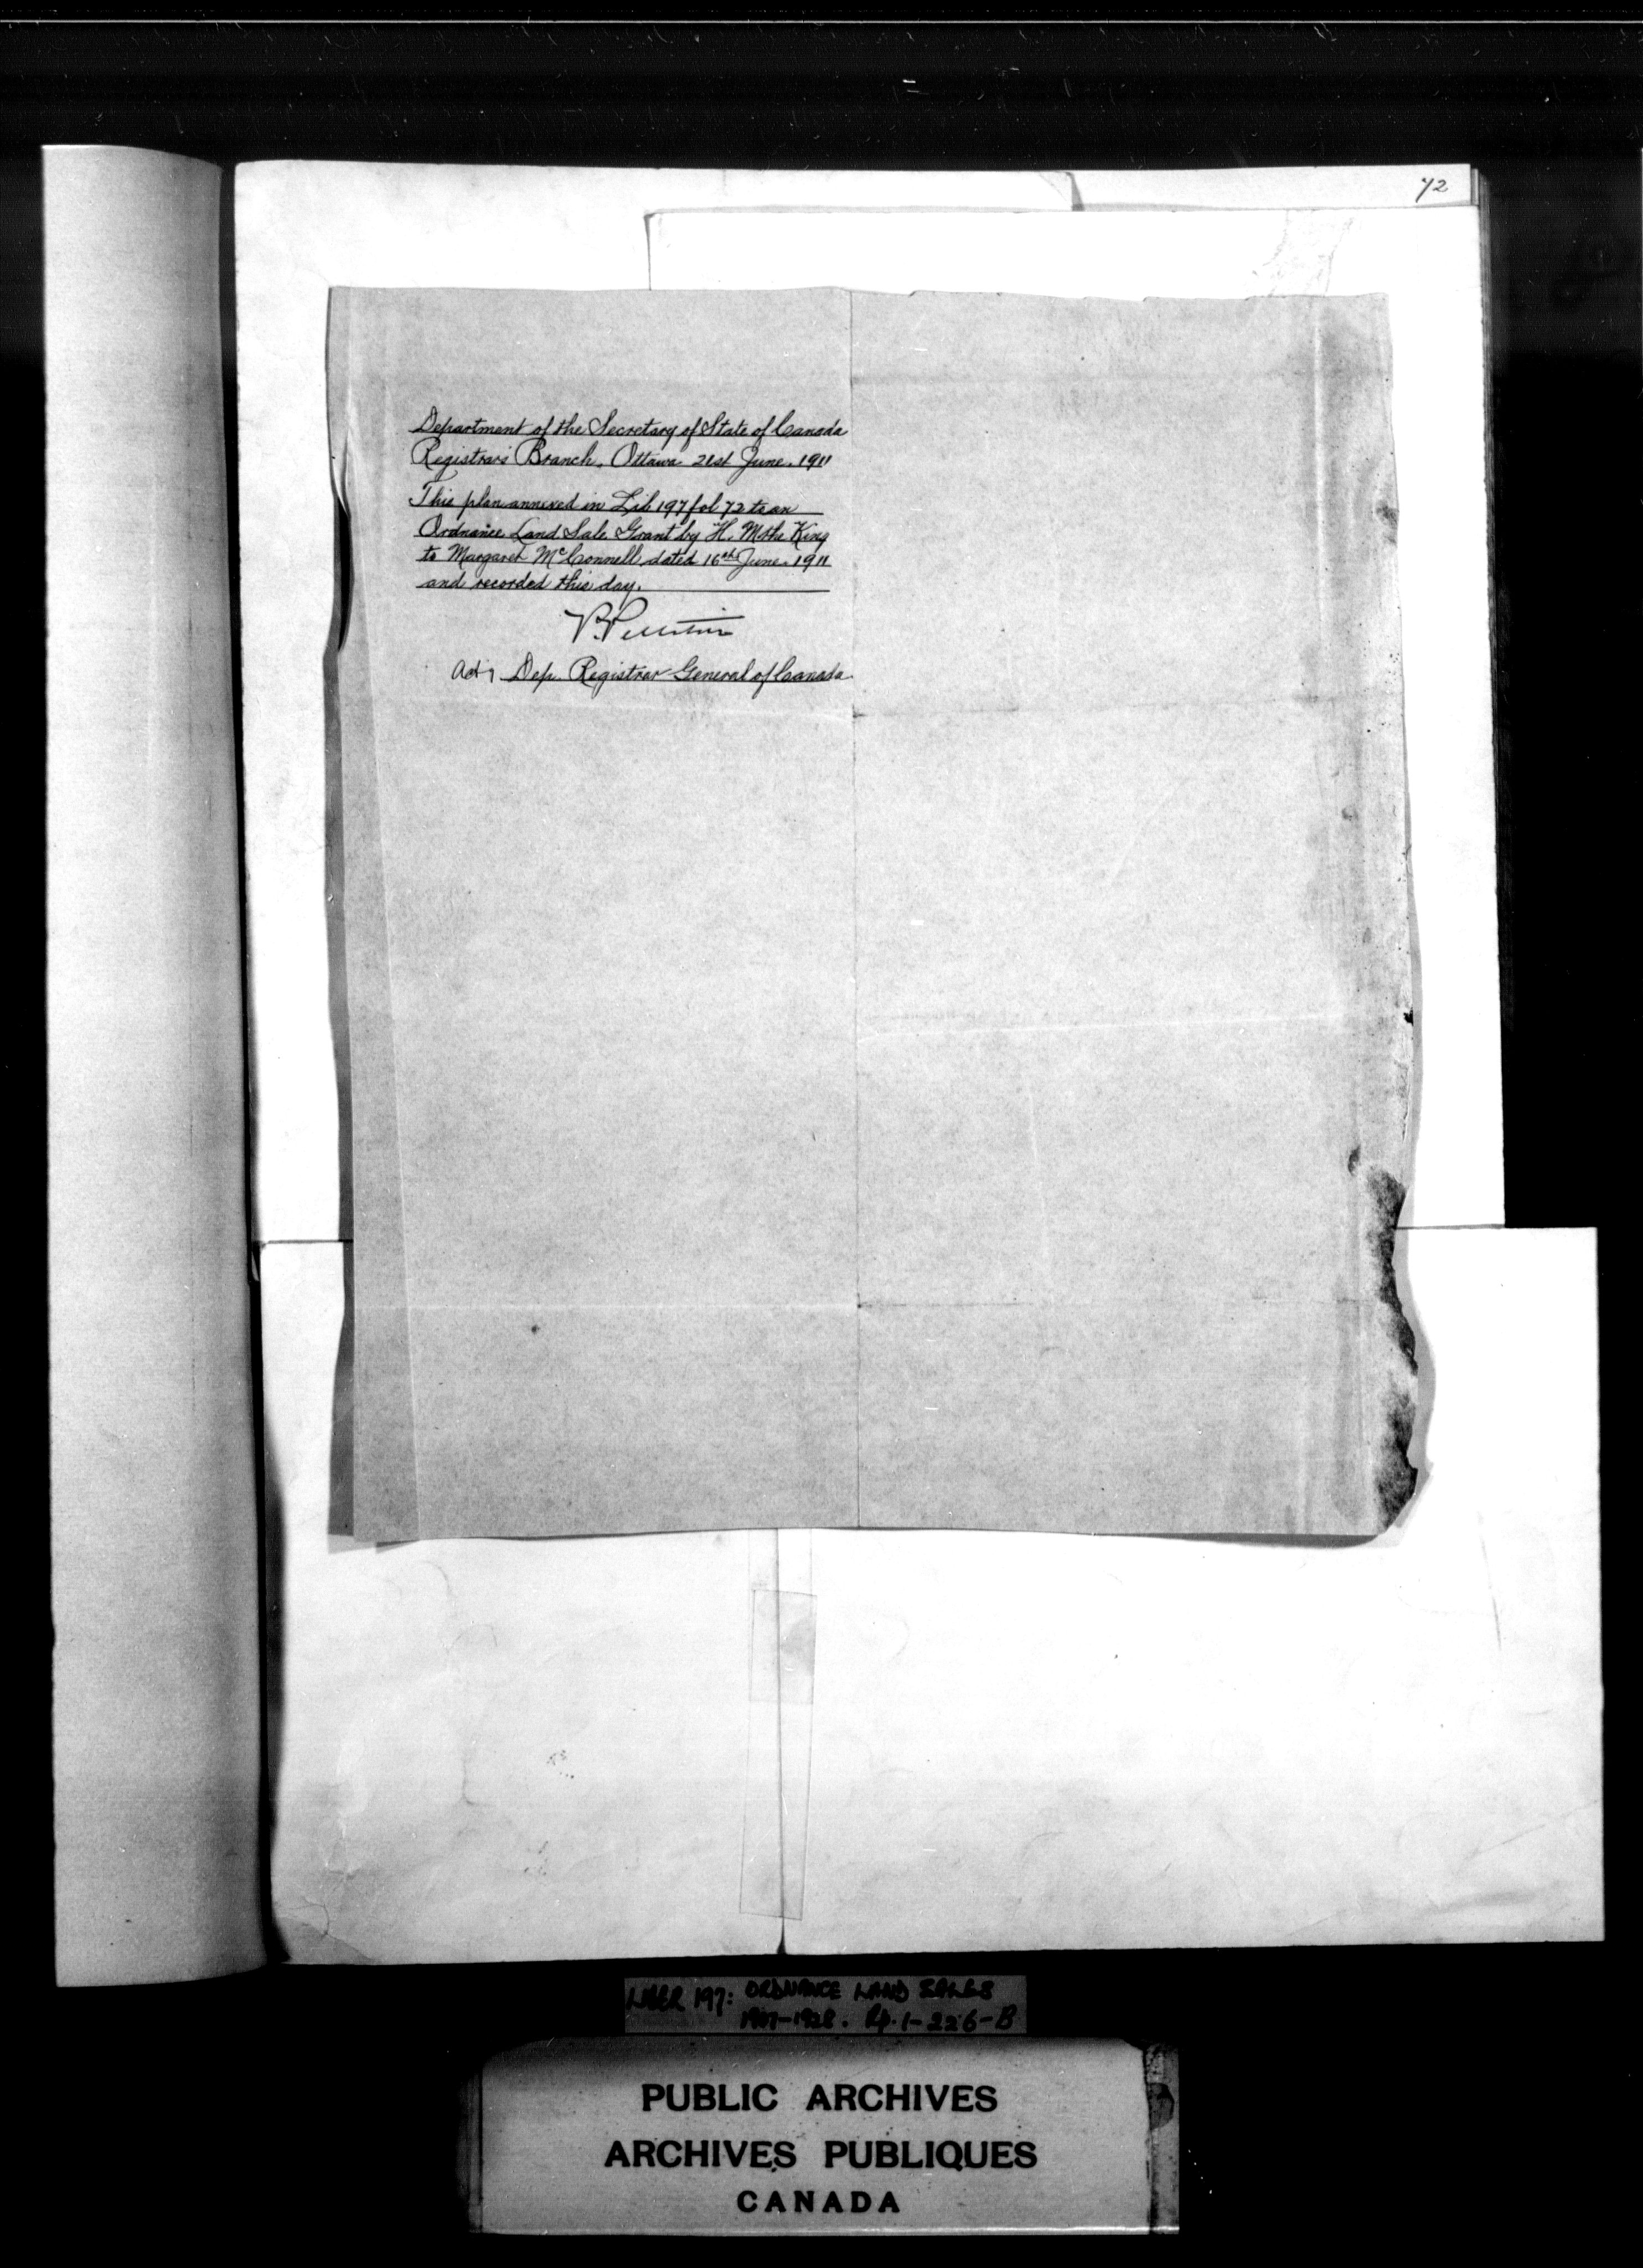 72
Department of the Secretary of State of Canada
Registrar's Branch, Ottawa 21st June. 1911
This plan annexed in Lib 197 fol 72 to an
Ordnance Land Sale Grant by H. M. the King
to Margaret McConnell dated 16th June. 1911
and recorded this day.
Actg Dep. Registrar General of Canada
LIBER 197: ORDNANCE LAND SALES
1907-1928. Pp. 1-226-B
PUBLIC ARCHIVES
ARCHIVES PUBLIQUES
CANADA